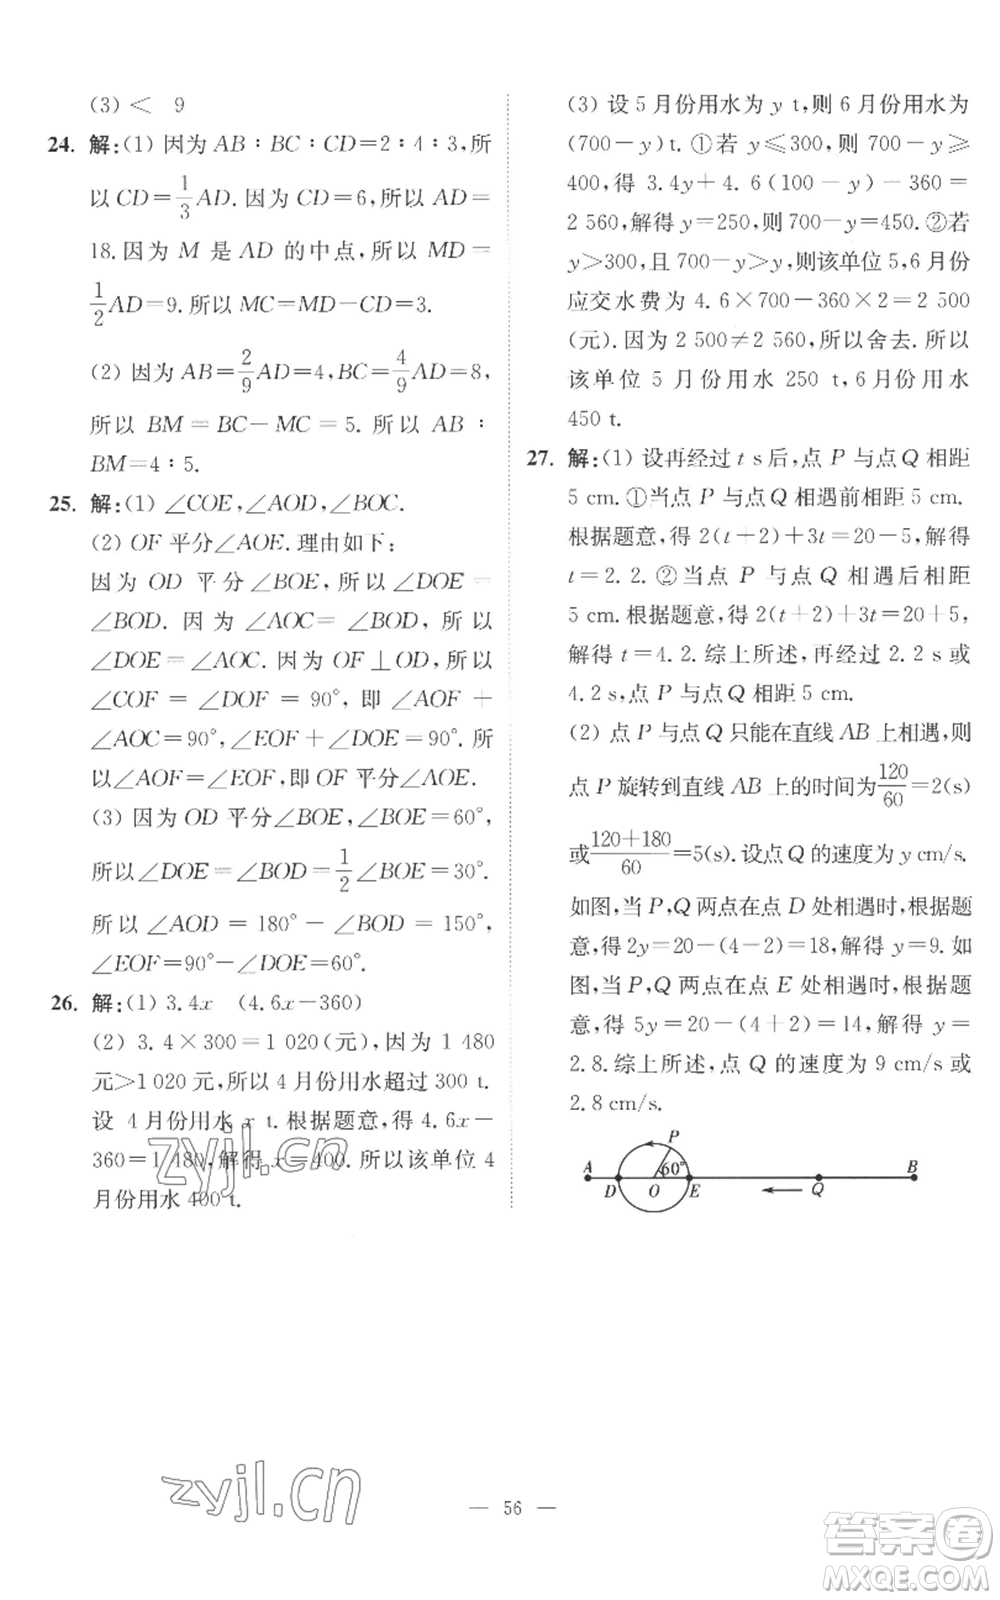 (3) < 9
24. 解:(1) 因为 AB∶BC∶CD=2∶4∶3,所
以 CD=1/3AD.因为 CD=6,所以 AD=
18.因为 M 是 AD 的中点,所以 MD=
1/2AD=9.所以 MC=MD-CD=3.
(2) 因为 AB=2/9AD=4,BC=4/9AD=8,
所以 BM=BC-MC=5.所以 AB∶
BM=4∶5.
25. 解:(1) ∠COE,∠AOD,∠BOC.
(2) OF 平分∠AOE.理由如下:
因为 OD 平分∠BOE,所以∠DOE=
∠BOD.因为∠AOC=∠BOD,所以
∠DOE=∠AOC.因为 OF⊥OD,所以
∠COF=∠DOF=90°,即∠AOF+
∠AOC=90°,∠EOF+∠DOE=90°.所
以∠AOF=∠EOF,即 OF 平分∠AOE.
(3) 因为 OD 平分∠BOE,∠BOE=60°,
所以∠DOE=∠BOD=1/2∠BOE=30°.
所以∠AOD=180°-∠BOD=150°,
∠EOF=90°-∠DOE=60°.
26. 解:(1) 3.4x (4.6x-360)
(2) 3.4×300=1 020(元),因为 1 480
元>1 020 元,所以 4 月份用水超过 300 t.
设 4 月份用水 x t.根据题意,得 4.6x-
360=1 480,解得 x=400.所以该单位 4
月份用水 400 t.
(3) 设 5 月份用水为 y t,则 6 月份用水为
(700-y)t.①若 y≤300,则 700-y≥
400,得 3.4y+4.6(700-y)-360=
2 560,解得 y=250,则 700-y=450.②若
y>300,且 700-y>y,则该单位 5,6 月份
应交水费为 4.6×700-360×2=2 500
(元).因为 2 500≠2 560,所以舍去.所以
该单位 5 月份用水 250 t,6 月份用水
450 t.
27. 解:(1) 设再经过 t s 后,点 P 与点 Q 相距
5 cm.①当点 P 与点 Q 相遇前相距 5 cm.
根据题意,得 2(t+2)+3t=20-5,解得
t=2.2.②当点 P 与点 Q 相遇后相距
5 cm.根据题意,得 2(t+2)+3t=20+5,
解得 t=4.2.综上所述,再经过 2.2 s 或
4.2 s,点 P 与点 Q 相距 5 cm.
(2) 点 P 与点 Q 只能在直线 AB 上相遇,则
点 P 旋转到直线 AB 上的时间为120/60=2(s)
或(120+180)/60=5(s).设点 Q 的速度为 y cm/s.
如图,当 P,Q 两点在点 D 处相遇时,根据题
意,得 2y=20-(4-2)=18,解得 y=9.如
图,当 P,Q 两点在点 E 处相遇时,根据题
意,得 5y=20-(4+2)=14,解得 y=
2.8.综上所述,点 Q 的速度为 9 cm/s 或
2.8 cm/s.
P
A 60° B
D O E Q
zyjl.cn
zyjl.cn
— 56 —
答案卷
MXQE.COM